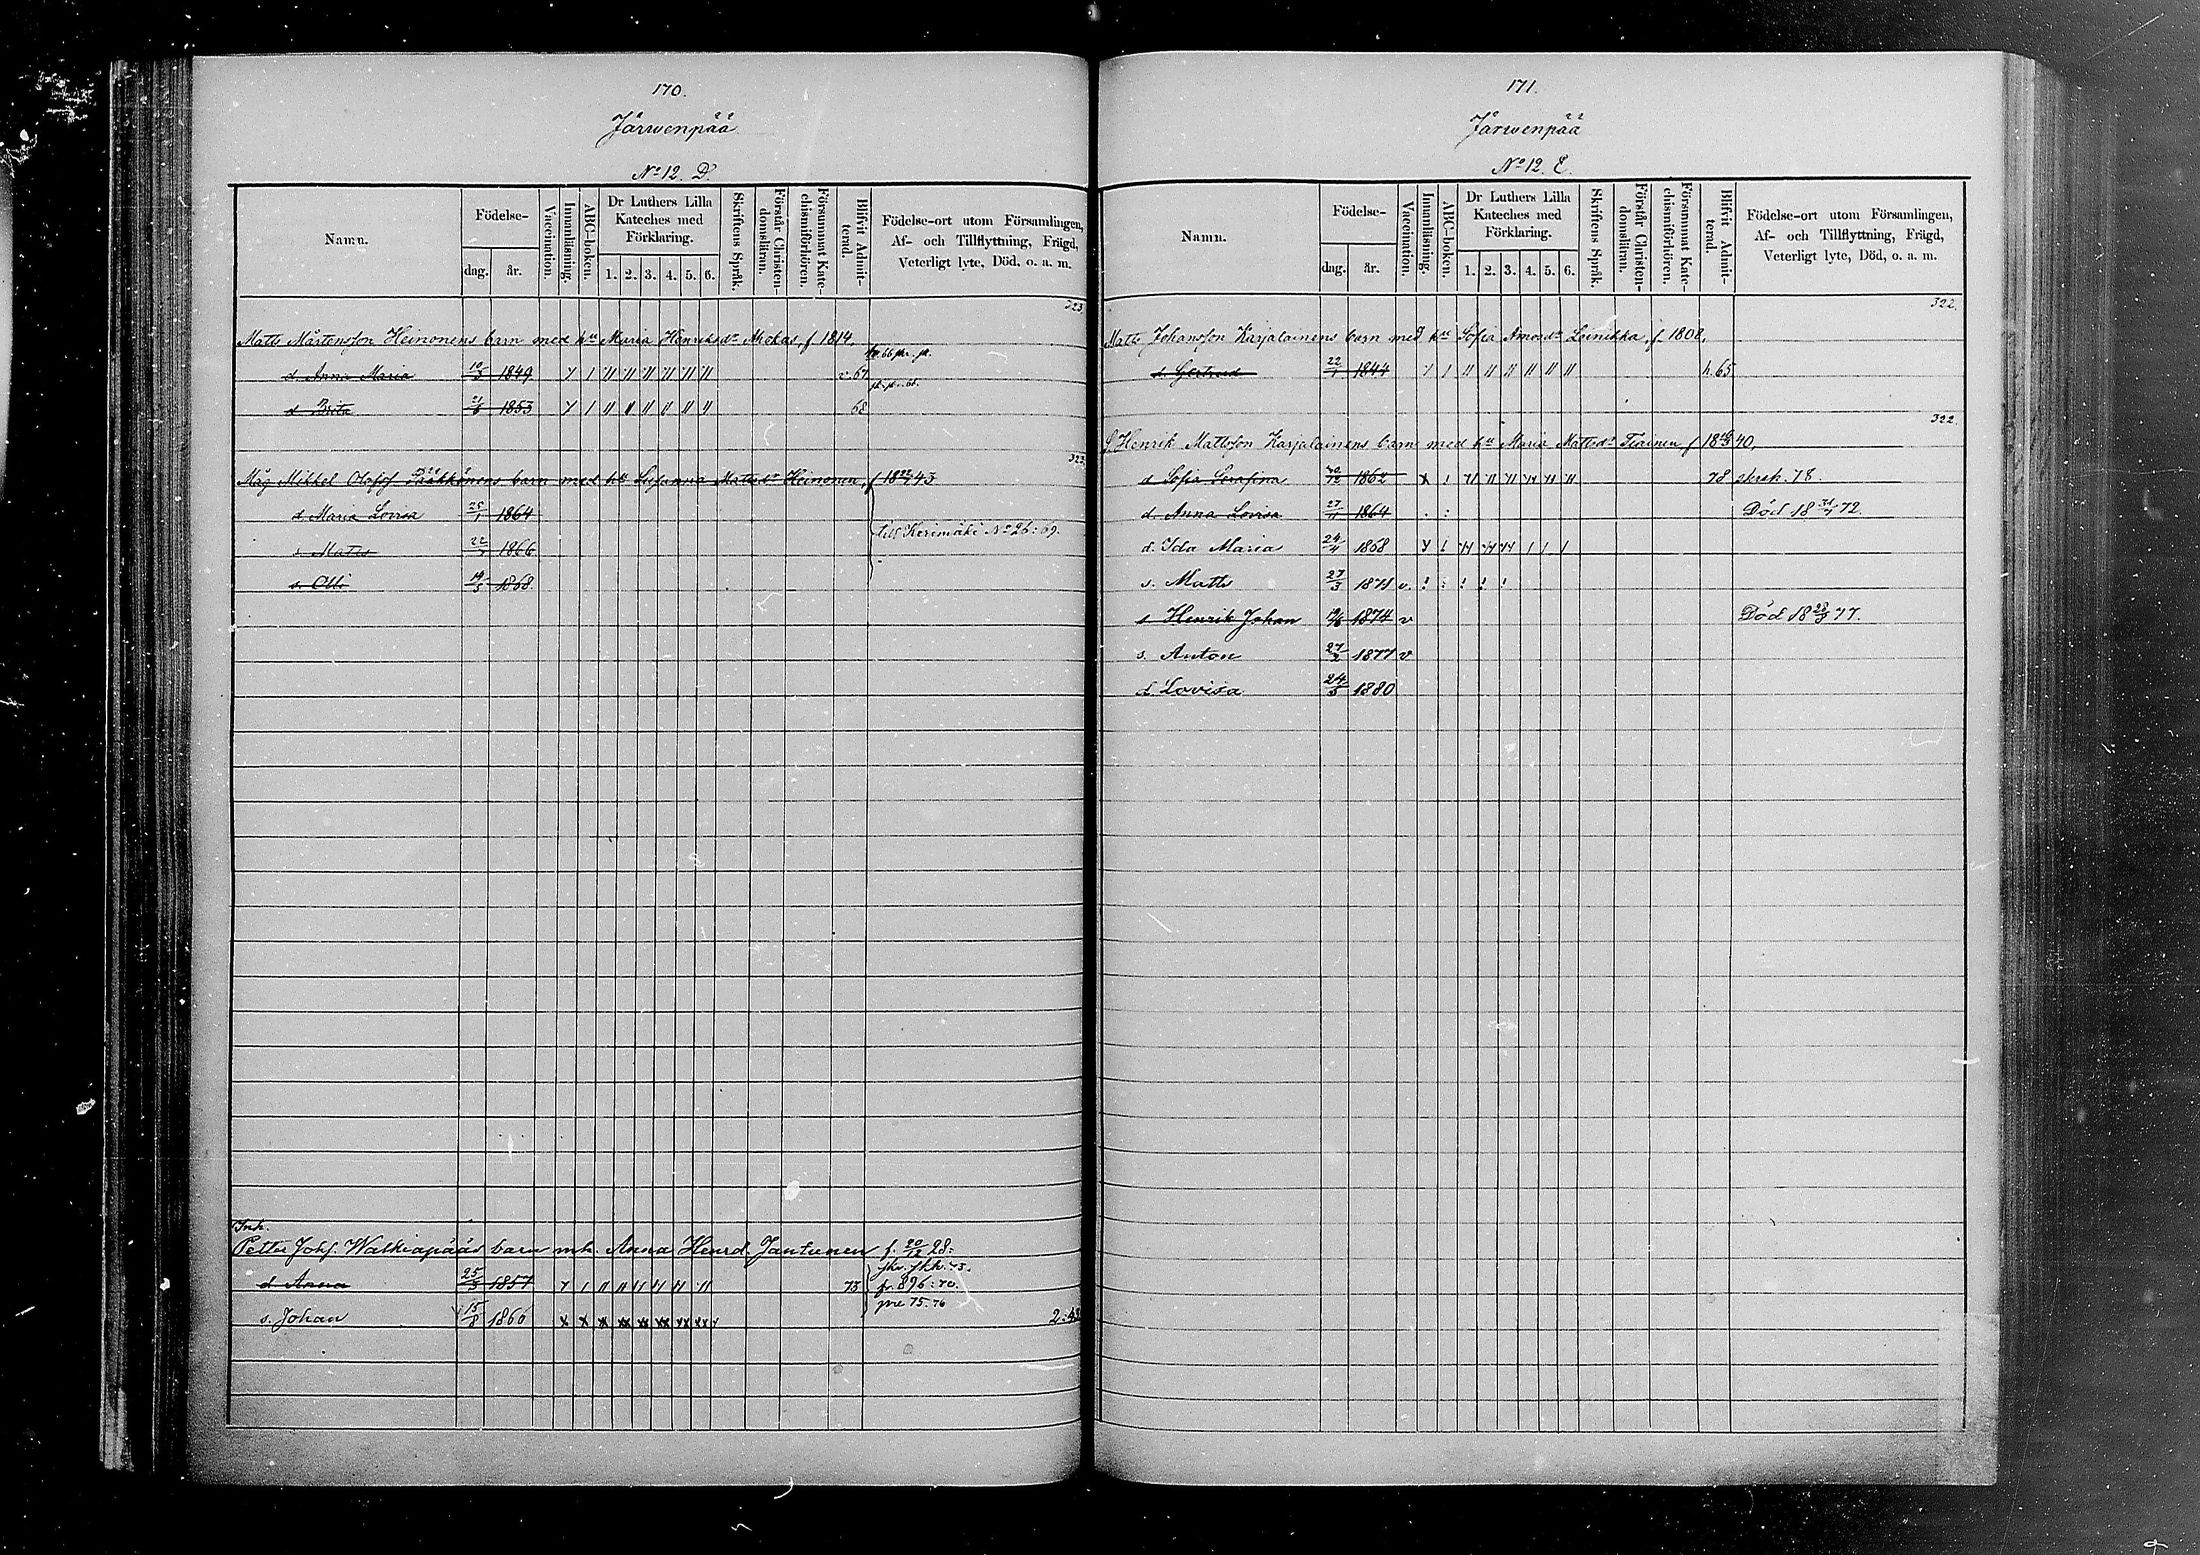 170.
Järwenpää
No 12. D.
Namn.
Födelse-
dag. år.
Vaccination.
Innanläsning.
ABC-boken.
Dr Luthers Lilla Kateches med Förklaring.
1. 2. 3. 4. 5. 6.
Skriftens Språk.
Förstår Christendomsläran.
Försummat Katechismiförhören.
Blifvit Admitterad.
Födelse-ort utom Församlingen,
Af- och Tillflyttning, Frägd,
Veterligt lyte, Död, o. a. m.
323.
Matts Mårtensson Heinonens barn med hu Maria Henriksdr f 1814.
d. Anna Maria 10/3 1849 67
d. Brita 21/6 1853 68
323.
Måg Mikkel Olofsf Pääkkönens barn med hu Susanna Matsdr Heinonen, f 18 22/7 43
d. Maria Lovisa 25/1 1864
till Kerimäki No 26: 69.
s. Matts 22/7 1866
s. Olli 14/5 1868.
Inh.
Petter Johs. Walkiapääs barn mh. Anna Henrd. Jantunen f. 20/12 28:
d. Anna 25/3 1857 73
fr. 896: 70.
s. Johan 15/8 1860
171.
Järwenpää
No 12. E.
Namn.
Födelse-
dag. år.
Vaccination.
Innanläsning.
ABC-boken.
Dr Luthers Lilla Kateches med Förklaring.
1. 2. 3. 4. 5. 6.
Skriftens Språk.
Förstår Christendomsläran.
Försummat Katechismiförhören.
Blifvit Admitterad.
Födelse-ort utom Församlingen,
Af- och Tillflyttning, Frägd,
Veterligt lyte, Död, o. a. m.
322.
Matts Johansson Karjalainens barn med hu Sofia Loinikka, f. 1808.
d. Gertrud 22/1 1844 h. 65
322.
S. Henrik Mattsson Karjalainens barn med hu Maria Mattsdr Tiainen f 40.
d. Sofia Serafina 1862 78 skrsk. 78.
d. Anna Lovisa 27/11 1864 Död 72.
d. Ida Maria 24/4 1868
s. Matts 27/3 1871 v.
s. Henrik Johan 1874 v Död 77.
s. Anton 27/2 1877 v
d. Lovisa 24/5 1880